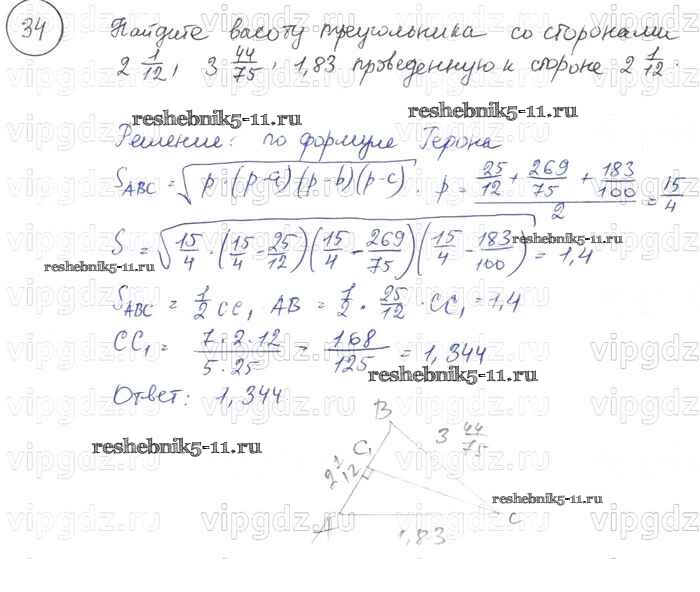 34 Найдите высоту треугольника со сторонами
2 1/12, 3 44/75, 1,83 проведенную к стороне 2 1/12.
reshebnik5-11.ru reshebnik5-11.ru
Решение: по формуле Герона
S_ABC = √(p·(p-a)(p-b)(p-c)). p = (25/12 + 269/75 + 183/100)/2 = 15/4
S = √(15/4·(15/4 - 25/12)(15/4 - 269/75)(15/4 - 183/100)) = 1,4
reshebnik5-11.ru reshebnik5-11.ru
S_ABC = 1/2 CC₁ AB = 1/2 · 25/12 · CC₁ = 1,4
CC₁ = (7·2·12)/(5·25) = 168/125 = 1,344
reshebnik5-11.ru
Ответ: 1,344
B
3 44/75
reshebnik5-11.ru
C₁
2 1/12
reshebnik5-11.ru
A C
1,83
vipgdz.ru